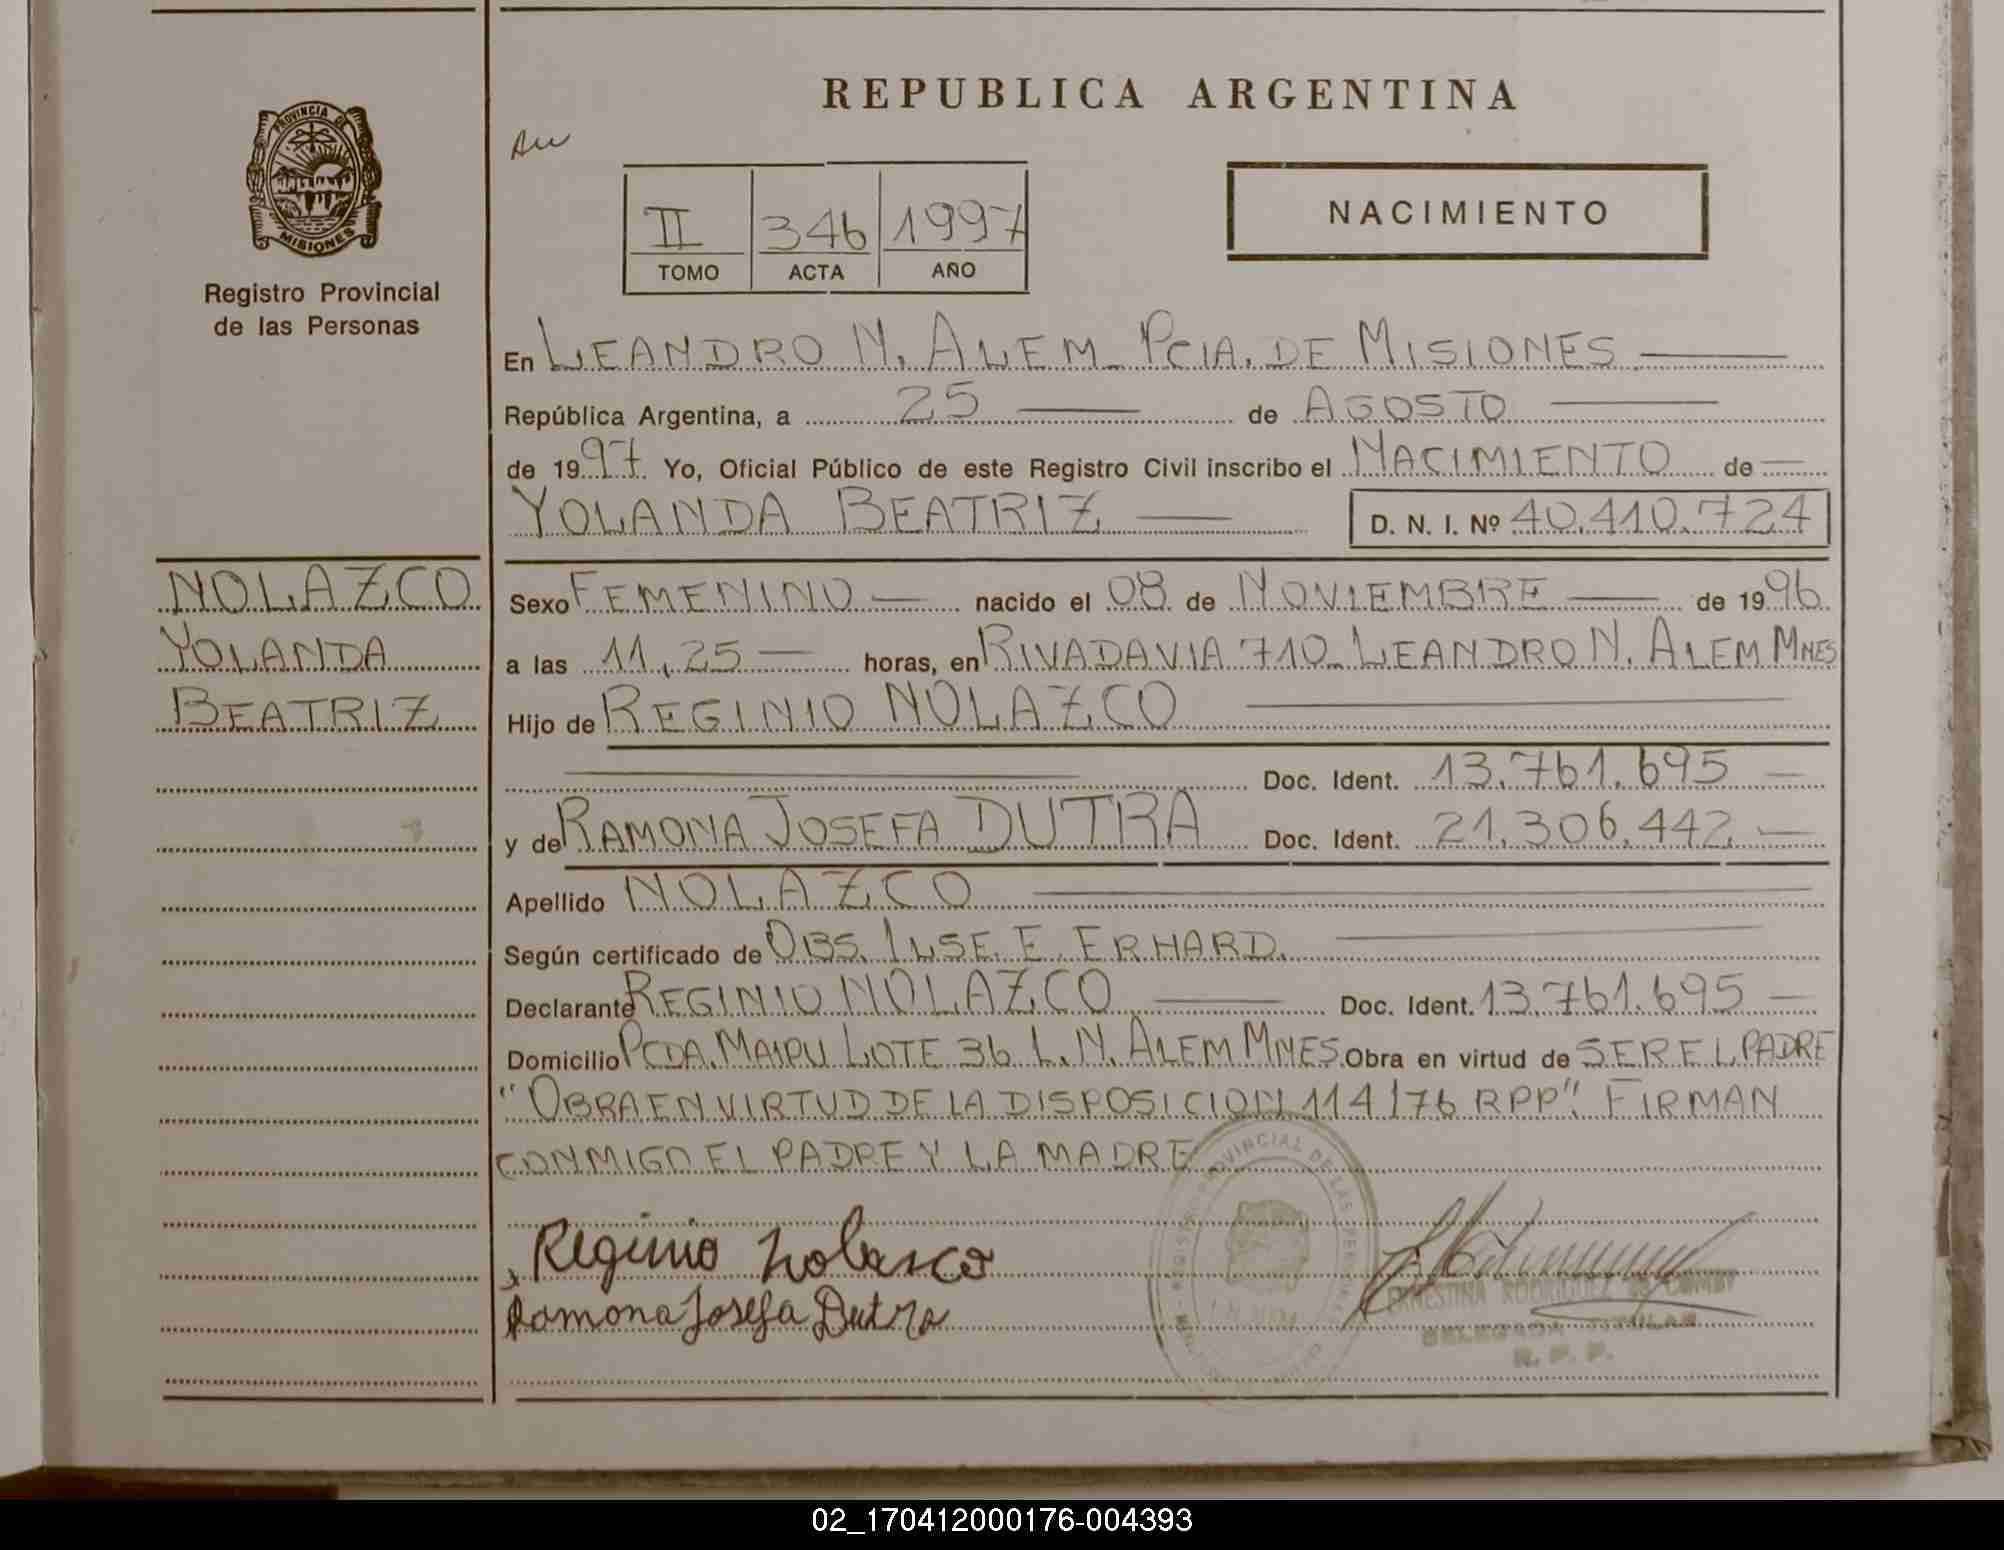 REPUBLICA ARGENTINA
PROVINCIA DE
MISIONES
Registro Provincial
de las Personas
II 346 1997
TOMO ACTA AÑO
NACIMIENTO
En LEANDRO N. ALEM - PCIA. DE MISIONES
República Argentina, a 25 de AGOSTO
de 1997 Yo, Oficial Público de este Registro Civil inscribo el NACIMIENTO de
YOLANDA BEATRIZ D. N. I. Nº 40.410.724
NOLAZCO
YOLANDA
BEATRIZ
Sexo FEMENINO nacido el 08 de NOVIEMBRE de 1996
a las 11,25 horas, en RIVADAVIA 710 - LEANDRO N. ALEM MNES
Hijo de REGINIO NOLAZCO
Doc. Ident. 13.761.695
y de RAMONA JOSEFA DUTRA Doc. Ident. 21.306.442
Apellido NOLAZCO
Según certificado de OBS. ILSE. E. ERHARD.
Declarante REGINIO NOLAZCO Doc. Ident. 13.761.695
Domicilio PCDA. MAIPU LOTE 36 L.N. ALEM MNES. Obra en virtud de SER EL PADRE
"OBRA EN VIRTUD DE LA DISPOSICION 114/76 RPP". FIRMAN
CONMIGO EL PADRE Y LA MADRE
Reginio Nolasco
Ramona Josefa Dutra
ERNESTINA RODRIGUEZ DE
DELEGADA TITULAR
R. P. P.
02_170412000176-004393